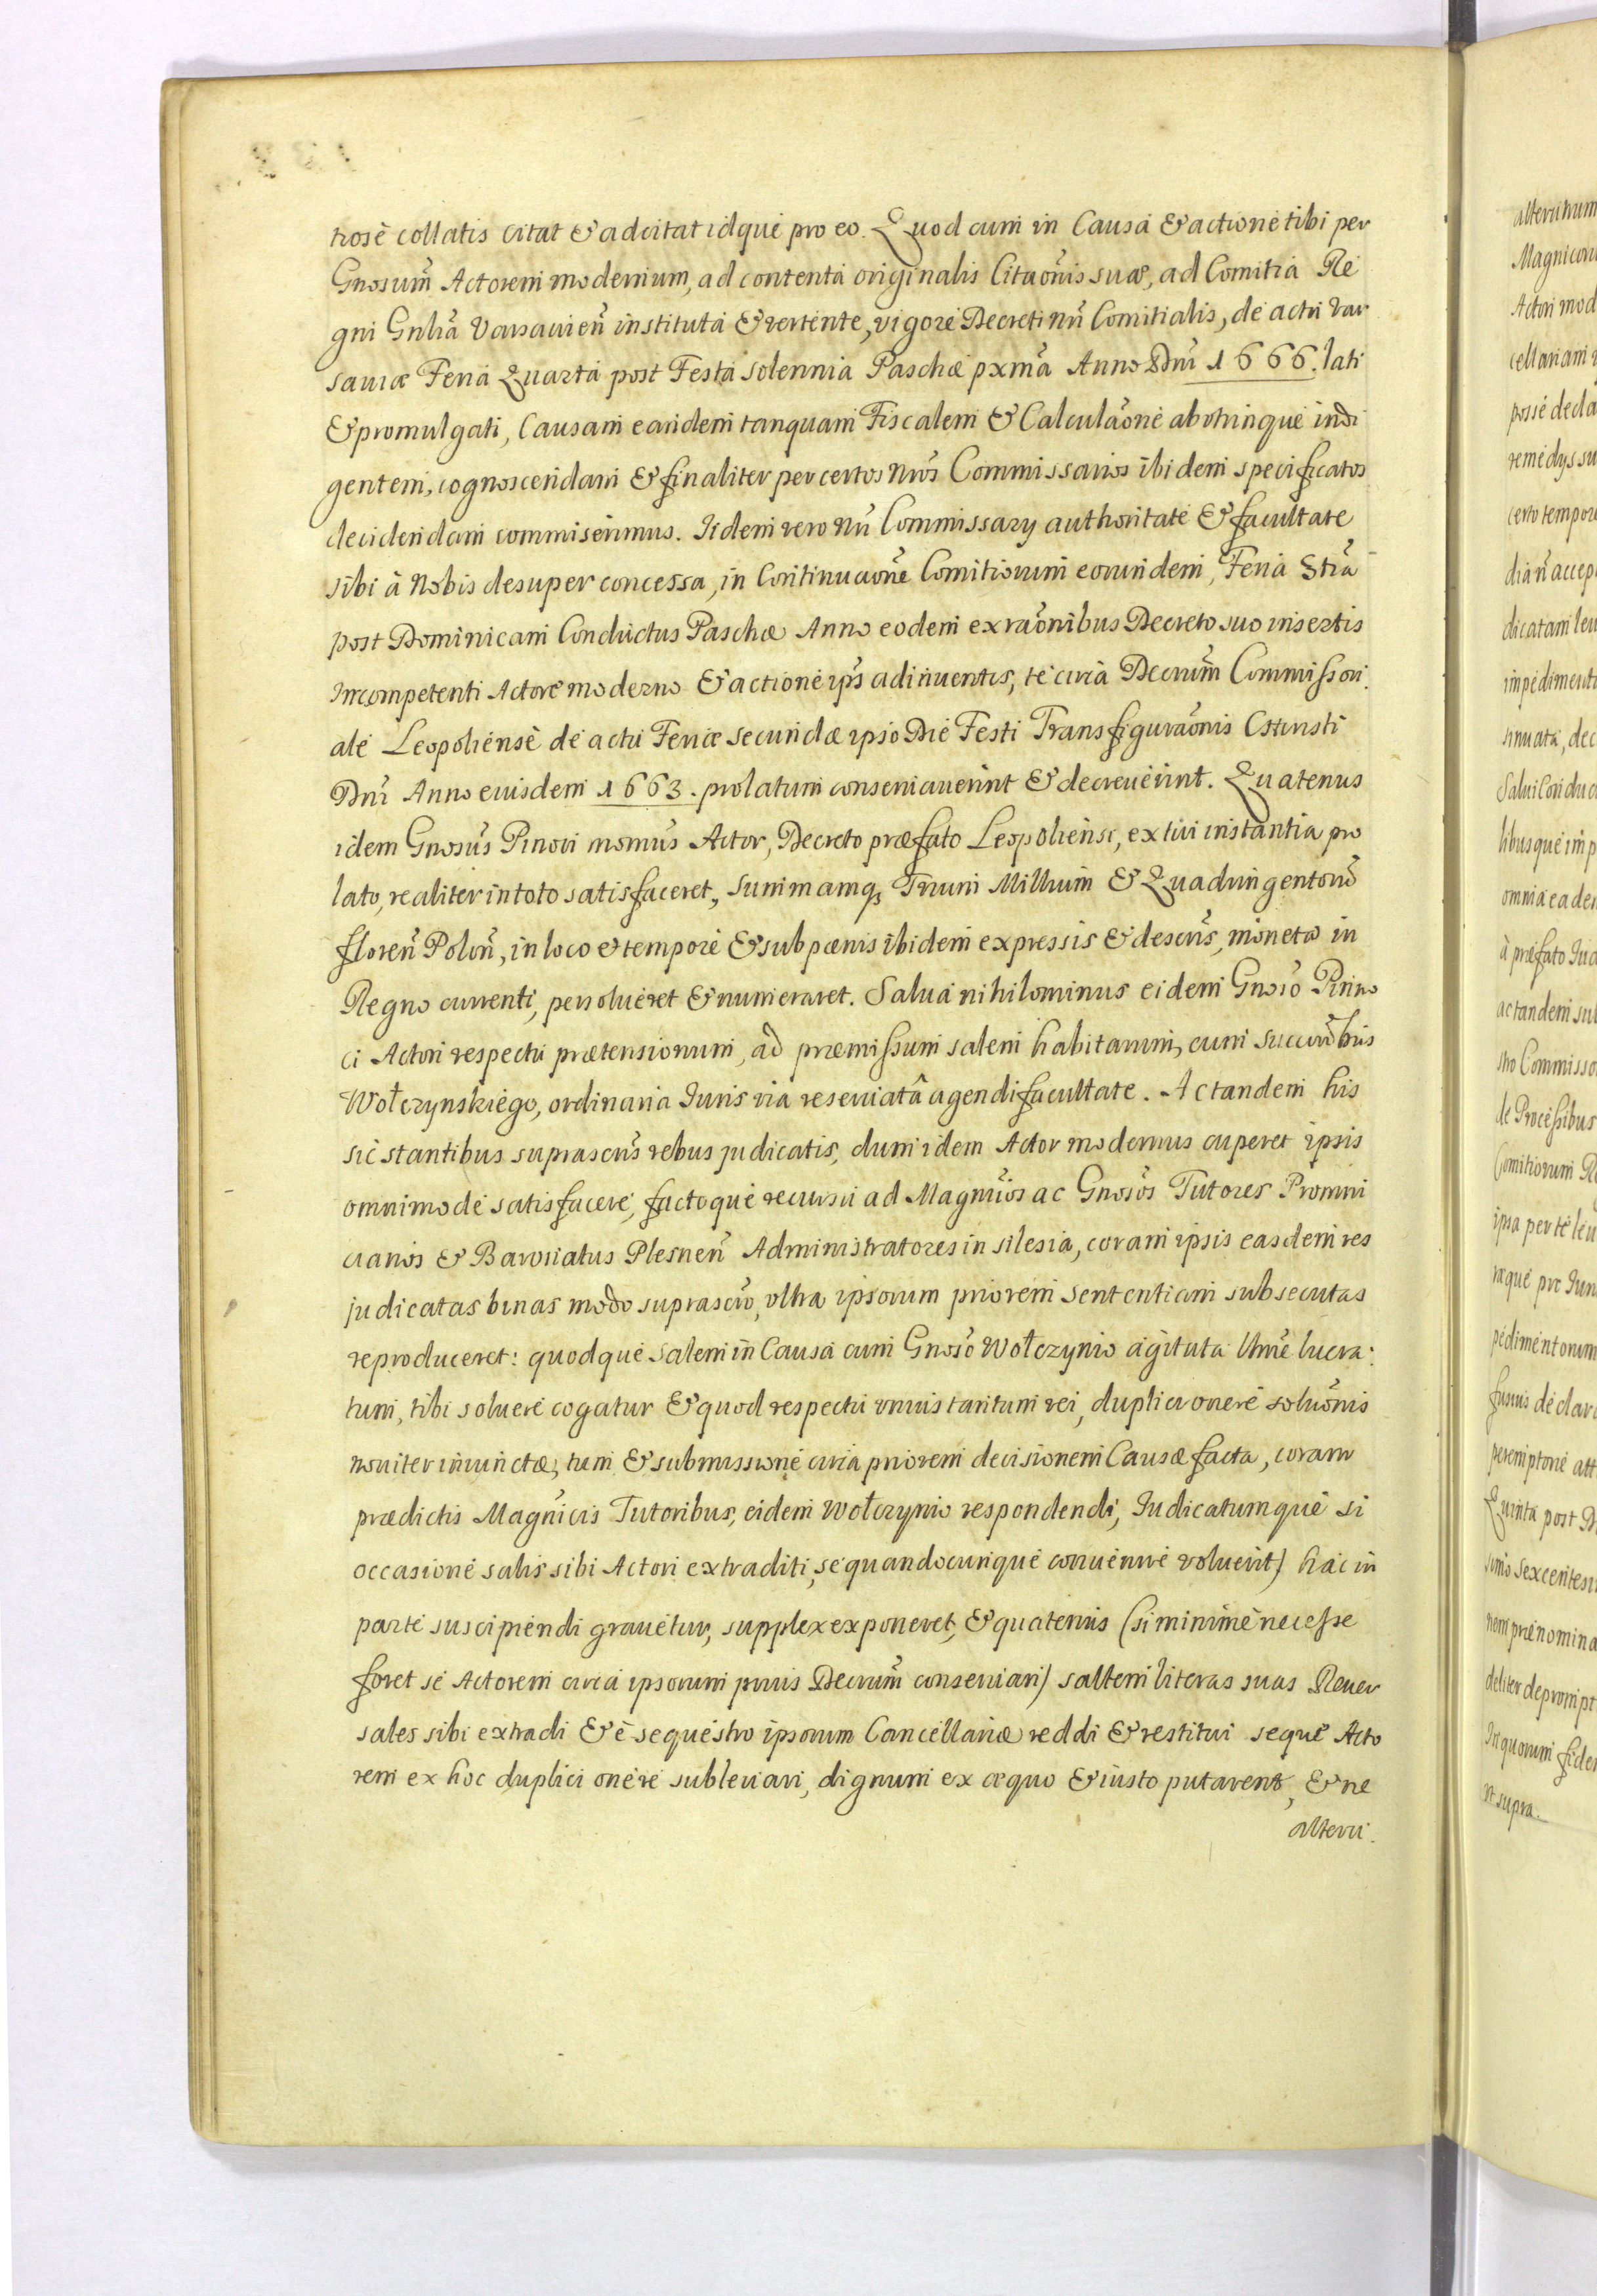 trosè collatis citat & adcitat idque pro eo. Quod cum in Causa & actione tibi per
Gnosum̃ Actorem modernum, ad contenta originalis Citaõnis suæ, ad Comitia Re
gni Gnlia Varsavien̄ instituta & vertente, vigore Decreti nr̄i Comitialis, de actu Var
saviæ Feria Quarta post Festa solennia Paschæ pxmã Anno Dnī 1666. lati
& promulgati, Causam eandem tanquam Fiscalem & Calculaõne ab vtrinque indi
gentem, cognoscendam & finaliter per certos Nros Commissarios ibidem specificatos
decidendam commiserimus. Iidem vero Nr̄i Commissary authoritate & facultate
sibi à Nobis desuper concessa, in Continuaõne Comitiorum eorundem, Feria Stiã
post Dominicam Conductus Paschæ Anno eodem ex raõnibus Decreto suo insertis
Incompetenti Actore moderno & actione ips̄ adinuentis, te circa Decrum̃ Commissori
ale Leopoliense de actu Feriæ secundæ ipso Die Festi Transfiguraõnis Christi
Dnī Anno eiusdem 1663. prolatum conseruaverint & decreuerint. Quatenus
idem Gnosus Pinoci Actor, Decreto præfato Leopoliensi, ex tui instantia pro
lato, realiter in toto satisfaceret, summamq; Trium Millium & Quadringentorũ
floren̄ Polon̄, in loco et tempore & sub pænis ibidem expressis & descris̃, moneta in
Regno currenti, persolueret & numeraret. Salua nihilominus eidem Gnoso Pinno
ci Actori respectu prætensionum, ad præmissum salem habitarum, cum succribus
Wołczynskiego, ordinaria Iuris via reseruatâ agendi facultate. Ac tandem his
sic stantibus suprascris̃ rebus judicatis, dum idem Actor modernus cuperet ipsis
omnimode satisfacere, factoque recursu ad Magnīcos ac Gnosos Tutores Promni
cianos & Baronatus Plesnen̄ Administratores in Silesia, coram ipsis easdem res
judicatas binas modo suprascro, vltra ipsorum priorem sententiam subsecutas
reproduceret: quodque salem in Causa cum Gnoso Wołczynio agitata lucra:
tum, tibi soluere cogatur & quod respectu vnius tantum rei, duplici onere soluõnis
nouiter iniunctæ, tum & submissione circa priorem decisionem Causæ facta, coram
prædictis Magnīcis Tutoribus, eidem Wołczynio respondendi, Iudicatumque si
occasione salis sibi Actori extraditi, se quandocunque conuenire voluerit) hac in
parte suscipiendi grauetur, supplex exponeret, & quatenus (si minimè necesse
foret se Actorem circa ipsorum prius Decrum̃ conseruari) saltem literas suas Reuer
sales sibi extradi & è sequestro ipsorum Cancellariæ reddi & restitui seque Acto
rem ex hoc duplici onere subleuari, dignum ex æquo & iusto putarent, & ne
alteru.
alterutrum
Actori mod
posse decla
certo tempore
impedimenti
sinuata, dec
omnia eadem
à præfato Iud
ac tandem sub
de Processibus
ipsa per te leu
Quinta post D
deliter deprompt
In quorum fidem
vt supra.